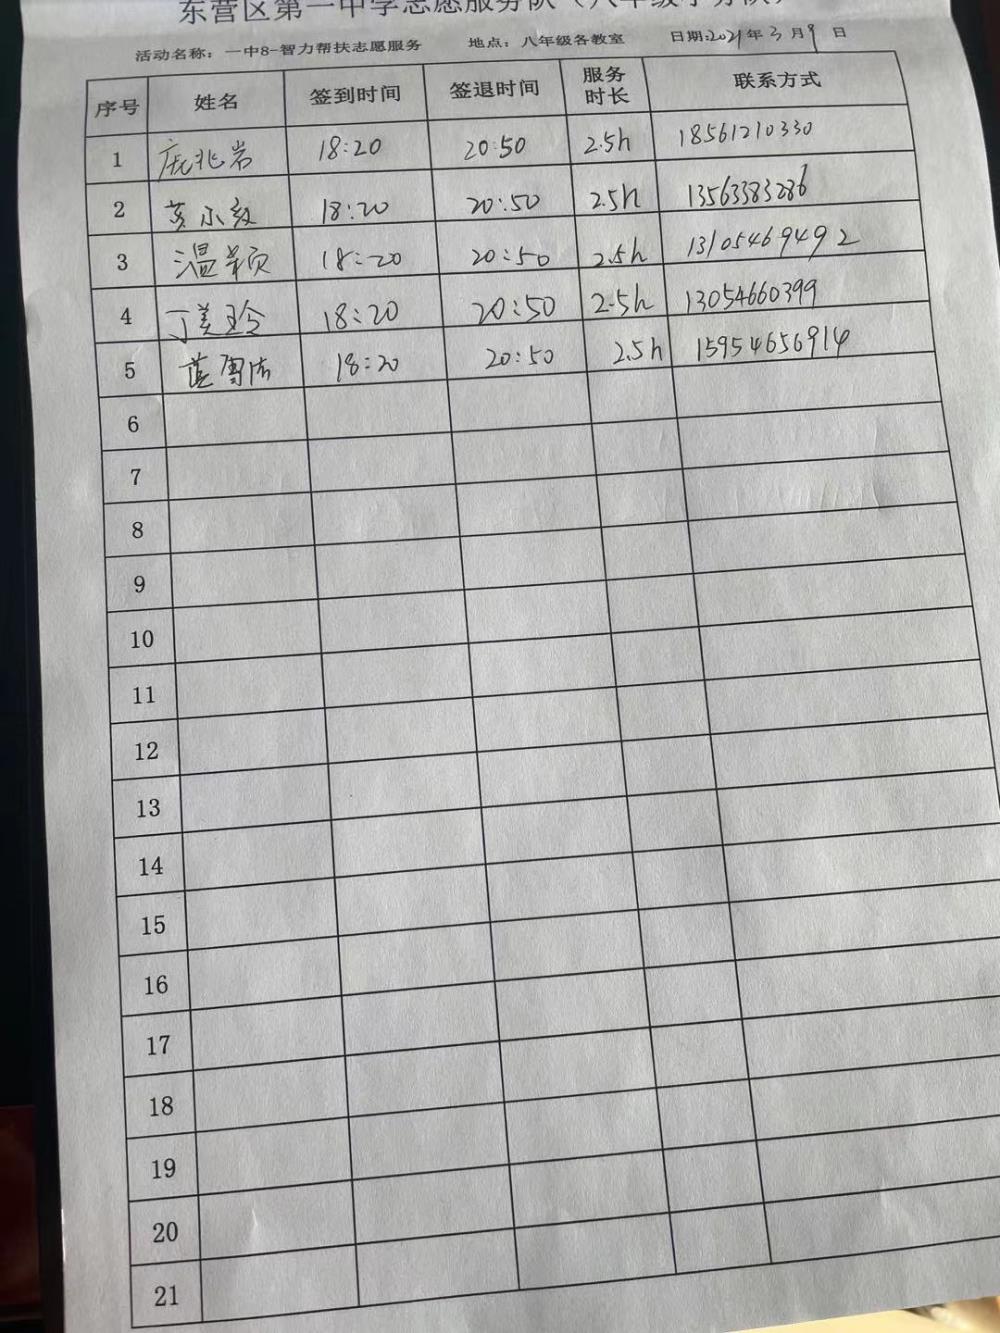 东营区第一中学志愿服务队（八年级小分队）
活动名称：一中8-智力帮扶志愿服务 地点：八年级各教室 日期:2021年3月9日
序号 姓名 签到时间 签退时间 服务时长 联系方式
1 庞兆岩 18:20 20:50 2.5h 18561210330
2 18:20 20:50 2.5h 13563383286
3 温颖 18:20 20:50 2.5h 13105469492
4 丁美玲 18:20 20:50 2.5h 13054660399
5 18:20 20:50 2.5h 15954656914
6
7
8
9
10
11
12
13
14
15
16
17
18
19
20
21